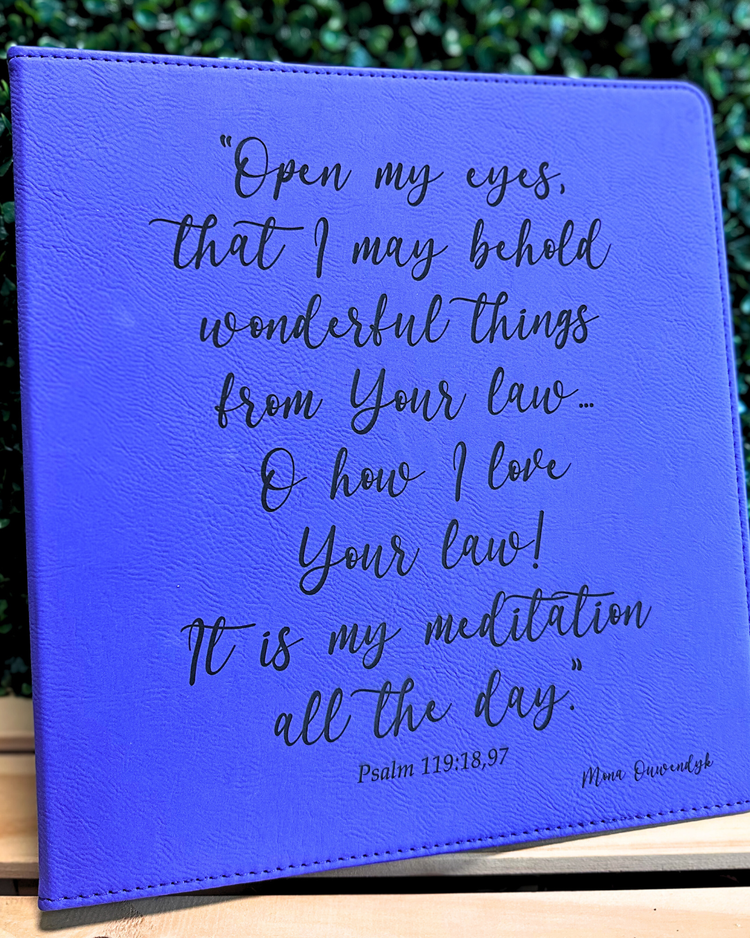 "Open my eyes,
that I may behold
wonderful things
from Your law...
O how I love
Your law!
It is my meditation
all the day."
Psalm 119:18,97
Mona Ouwendyk